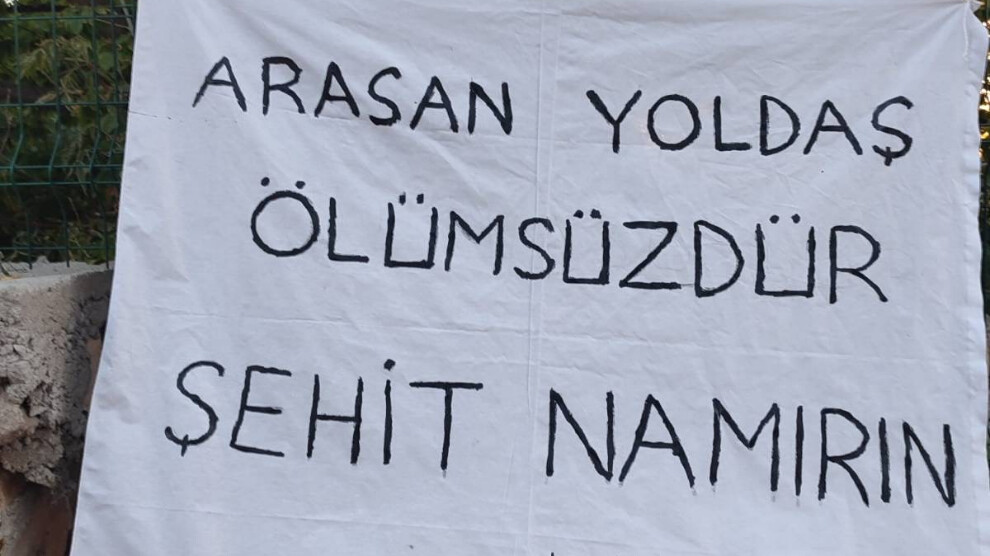 ARASAN YOLDAŞ
ÖLÜMSÜZDÜR
ŞEHİT NAMIRIN